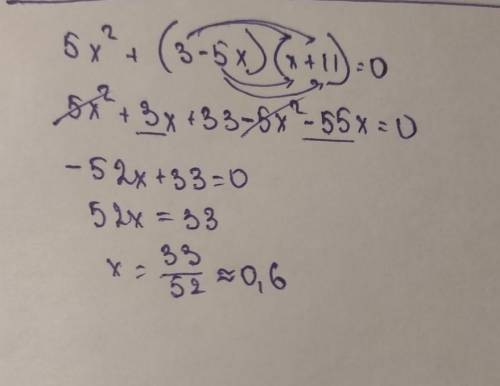 5x² + (3-5x)(x+11)=0
5x² + 3x+33-5x²-55x=0
-52x+33=0
52x = 33
x = 33/52 ≈ 0,6